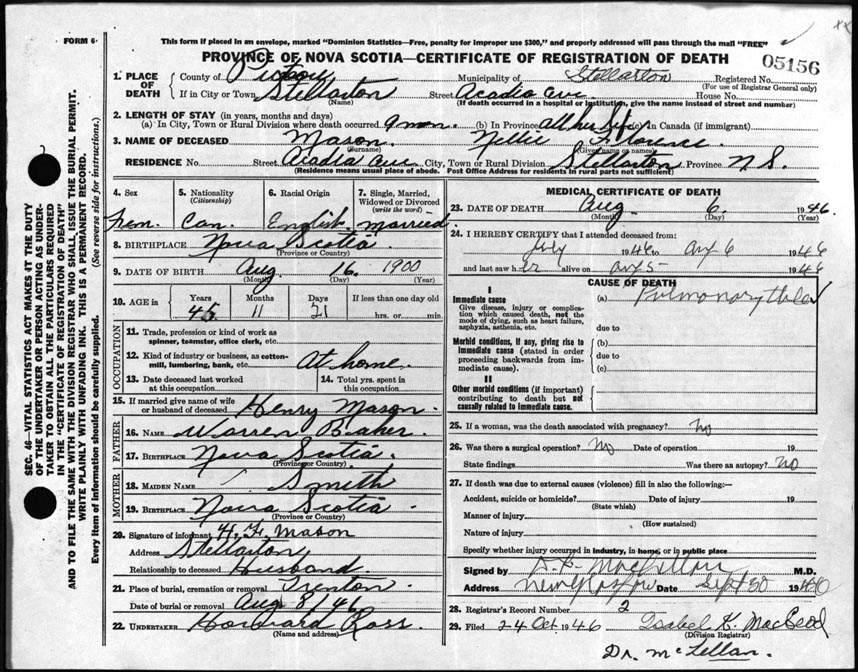 FORM 6
This form if placed in an envelope, marked "Dominion Statistics—Free, penalty for improper use $300," and properly addressed will pass through the mail "FREE"
PROVINCE OF NOVA SCOTIA—CERTIFICATE OF REGISTRATION OF DEATH
05156
1. PLACE OF DEATH
County of Pictou Municipality of Stellarton Registered No.
(For use of Registrar General only)
If in City or Town Stellarton Street Acadia Ave House No.
(Name) (If death occurred in a hospital or institution, give the name instead of street and number)
2. LENGTH OF STAY (in years, months and days)
(a) In City, Town or Rural Division where death occurred 9 mon. (b) In Province all her life (c) In Canada (if immigrant)
3. NAME OF DECEASED Mason Nellie
(Surname) (Given name or names)
RESIDENCE No. Street Acadia Ave City, Town or Rural Division Stellarton Province N S.
(Residence means usual place of abode. Post Office Address for residents in rural parts not sufficient)
4. Sex
Fem.
5. Nationality
(Citizenship)
Can.
6. Racial Origin
English
7. Single, Married, Widowed or Divorced
(write the word)
married
8. BIRTHPLACE Nova Scotia
(Province or Country)
9. DATE OF BIRTH Aug. 16. 1900
(Month) (Day) (Year)
10. AGE in
Years Months Days If less than one day old
45 11 21 hrs. or min.
OCCUPATION
11. Trade, profession or kind of work as spinner, teamster, office clerk, etc.
12. Kind of industry or business, as cotton-mill, lumbering, bank, etc. At home.
13. Date deceased last worked at this occupation
14. Total yrs. spent in this occupation
15. If married give name of wife or husband of deceased Henry Mason.
FATHER
16. NAME Warren Baker
17. BIRTHPLACE Nova Scotia.
(Province or Country)
MOTHER
18. MAIDEN NAME Smith
19. BIRTHPLACE Nova Scotia.
(Province or Country)
20. Signature of informant Mason
Address Stellarton
Relationship to deceased Husband
21. Place of burial, cremation or removal Trenton.
Date of burial or removal Aug 8/46
22. UNDERTAKER Howard Ross.
(Name and address)
MEDICAL CERTIFICATE OF DEATH
23. DATE OF DEATH Aug 6. 1946
(Month) (Day) (Year)
24. I HEREBY CERTIFY that I attended deceased from:
July 1946 to Aug 6 1946
and last saw her alive on Aug 5 1946
CAUSE OF DEATH
I
Immediate cause
Give disease, injury or complication which caused death, not the mode of dying, such as heart failure, asphyxia, asthenia, etc.
(a) Pulmonary
due to
Morbid conditions, if any, giving rise to immediate cause (stated in order proceeding backwards from immediate cause).
(b)
due to
(c)
II
Other morbid conditions (if important) contributing to death but not causally related to immediate cause.
25. If a woman, was the death associated with pregnancy? no
26. Was there a surgical operation? no Date of operation 19
State findings Was there an autopsy? no
27. If death was due to external causes (violence) fill in also the following:—
Accident, suicide or homicide? Date of injury 19
(State which)
Manner of injury
(How sustained)
Nature of injury
Specify whether injury occurred in industry, in home, or in public place
Signed by M.D.
Address New Glasgow Date Sept 30 19
28. Registrar's Record Number 2
29. Filed 24 Oct 1946 Isabel K. MacLeod
(Division Registrar)
Dr. McLellan.
SEC. 46—VITAL STATISTICS ACT MAKES IT THE DUTY
OF THE UNDERTAKER OR PERSON ACTING AS UNDER-
TAKER TO OBTAIN ALL THE PARTICULARS REQUIRED
IN THE "CERTIFICATE OF REGISTRATION OF DEATH"
AND TO FILE THE SAME WITH THE DIVISION REGISTRAR WHO SHALL ISSUE THE BURIAL PERMIT.
WRITE PLAINLY WITH UNFADING INK. THIS IS A PERMANENT RECORD.
Every item of information should be carefully supplied. (See reverse side for instructions.)